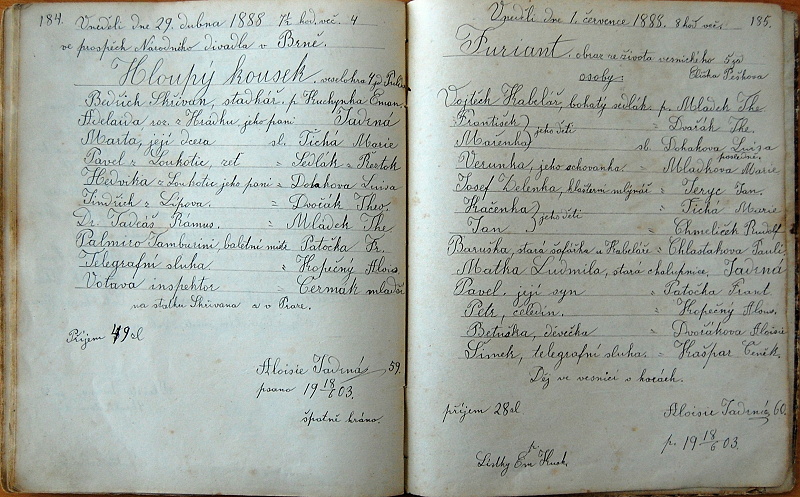 184. V neděli dne 29. dubna 1888 7½ hod. več. 4
ve prospěch Národního divadla v Brně.
Hloupý kousek. veselohra 4 jed
Bedřich Skřivan, statkář. p. Kuchynka Eman.
Adelaida roz. z Hrádku jeho paní Jadrná
Marta, její dcera sl. Tichá Marie
Pavel z Loukotic, zeť = Sedlák
Hedvika z Loukotic, jeho paní = Dohakova Luisa
Jindřich z Lípova. = Dvořák Theo.
Dr. Tadeáš Rámus. = Mládek The
Palmiro Tamburini, baletní mistr Patočka Fr.
Telegrafní sluha = Kopečný Alois.
Votava inspektor = Čermák mladší
na statku Skřivana a v Praze.
Příjem 49 zl
Aloisie Jadrná 59.
psano 19 18/6 03.
špatně hráno.
V neděli dne 1. července 1888. 8 hod več. 185.
Furiant. obraz ze života vesnického 5 jd
osoby Eliška Pešková
Vojtěch Kabelář, bohatý sedlák. p. Mládek The
František) jeho děti = Dvořák The.
Mařenka) sl. Dohakova Luisa
posledně.
Verunka, jeho schovanka. = Mladkova Marie
Josef Zelenka, klášterní mlynář = Teryc Jan.
Kačenka) jeho děti = Tichá Marie
Jan ) = Chmelíček Rudolf
Baruška, stará šafářka u Kabeláře = Chlastakova Pauli.
Matka Ludmila, stará chalupnice, Jadrná
Pavel. její syn = Patočka Frant
Petr, čeledín. = Kopečný Alois.
Betuška, děvečka = Dvořákova Aloisie
Šimek, telegrafní sluha. = Kašpar Čeněk.
Děj ve vesnici v horách.
příjem 28 zl Aloisie Jadrná 60.
p. 19 18/6 03.
p.
Lístky Em Kuch.